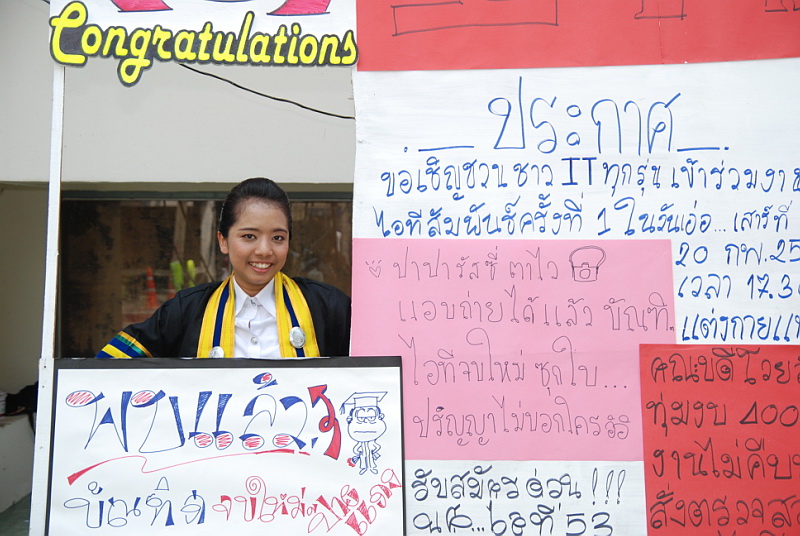 Congratulations
ประกาศ
ขอเชิญชวน ชาว IT ทุกรุ่น เข้าร่วมงา
ไอทีสัมพันธ์ครั้งที่ 1 ในวันเอ่อ... เสาร์ที่
20 กพ. 25
เวลา 17.3
แต่งกายแ
ปาปารัสซี่ ตาไว
แอบถ่ายได้แล้ว บัณฑิ
ไอทีจบใหม่ ซุกใบ...
ปริญญาไม่บอกใคร
พบแล้ว
บัณฑิต จบใหม่
รับสมัครด่วน!!!
นศ...ไอที 53
คณบดีโวย
ทุ่มงบ 400
งานไม่คืบ
สั่งตรวจส